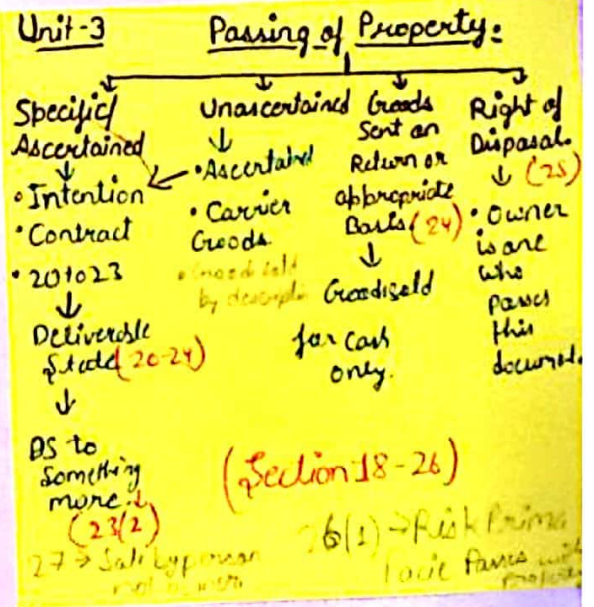 Unit-3
Passing of Property:
Specific/
Ascertained
• Intention
• Contract
• 20 to 23
Deliverable
State (20-24)
DS to
Something
more.
(23(2)
27 → Sale by person
not owner
Unascertained
• Ascertained
• Carrier
Goods.
• Good sold
by descripti
Goods
Sent on
Return or
appropriate
Basis (24)
Goods sold
for cash
only.
Right of
Disposal.
(25)
• Owner
is one
who
passes
this
document.
(Section 18-26)
26(1) → Risk Prima
Facie Passes with
Property